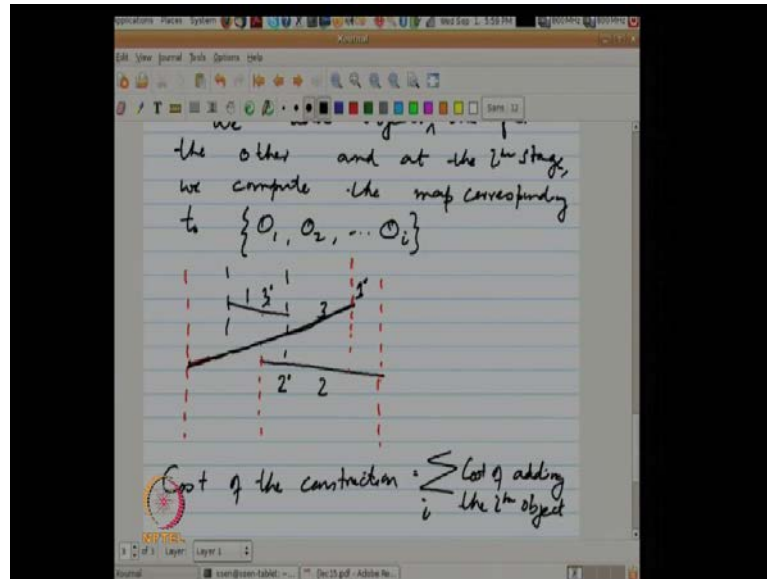 Applications Places System Wed Sep 1, 5:59 PM 800 MHz 800 MHz
Xournal
Edit View Journal Tools Options Help
Sans 12
the other and at the ith stage,
we compute the map corresponding
to {O1, O2, ... Oi}
1 3' 3 1'
2' 2
Cost of the construction = ∑i Cost of adding the ith object
NPTEL
3 of 3 Layer: Layer 1
Xournal ssen@ssen-tablet: ~... [lec15.pdf - Adobe Re...